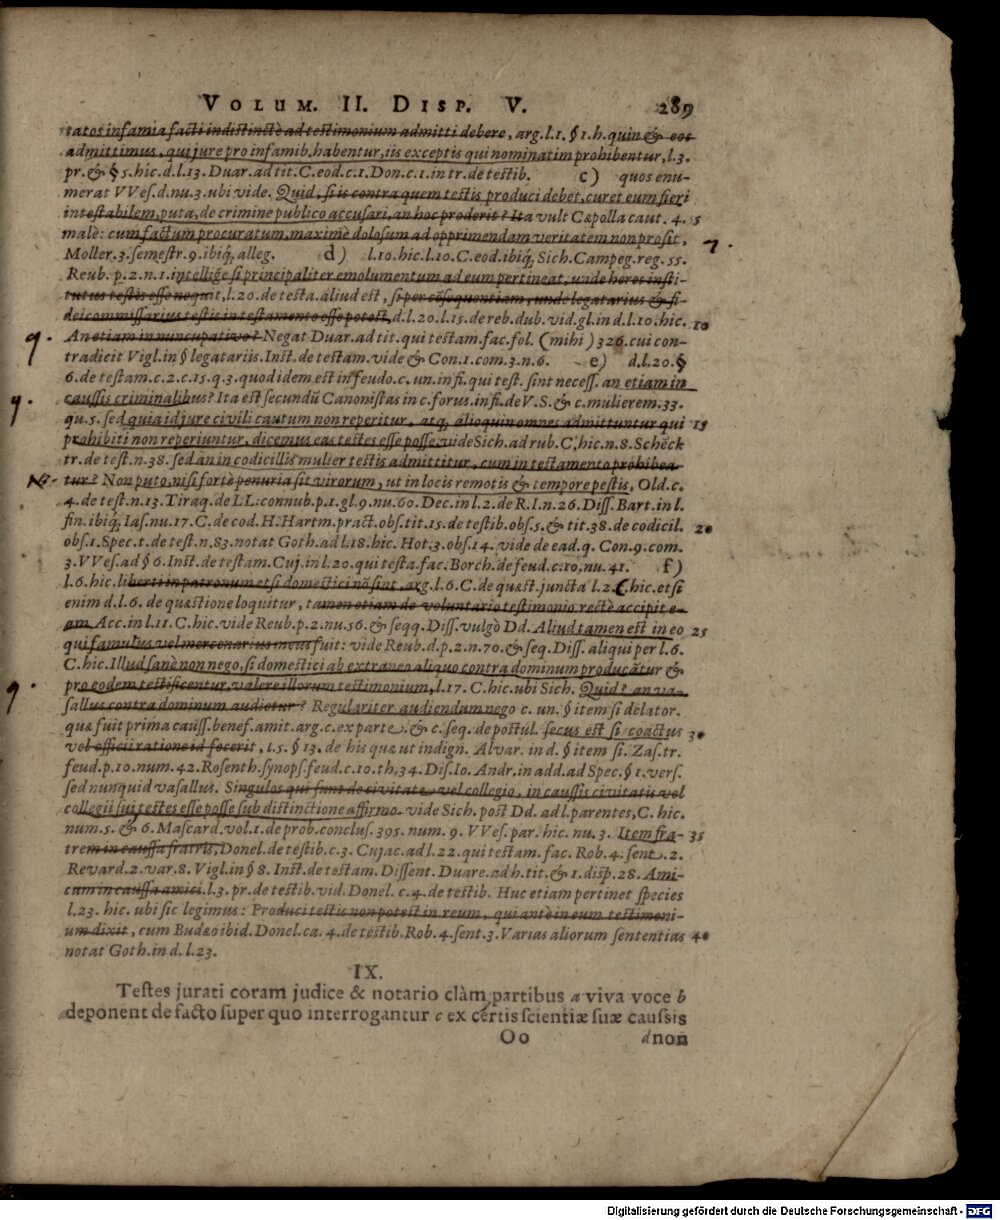 VOLUM. II. DISP. V. 289
tatos infamia facti indistinctè ad testimonium admitti debere, arg. l. 1. § 1. h. quin & eos
admittimus, qui jure pro infamib. habentur, iis exceptis qui nominatim prohibentur, l. 3.
pr. & § 5. hic. d. l. 13. Duar. ad tit. C. eod. c. 1. Don. c. 1. in tr. de testib. c) quos enu-
merat VVes. d. nu. 3. ubi vide. Quid, si is contra quem testis produci debet, curet eum fieri
intestabilem, puta, de crimine publico accusari, an hoc proderit? Ita vult Capolla caut. 4. 5
malè: cum factum procuratum, maximè dolosum ad opprimendam veritatem non prosit,
Moller. 3. semestr. 9. ibiq́; alleg. d) l. 10. hic. l. 10. C. eod. ibiq́; Sich. Campeg. reg. 55.
Reub. p. 2. n. 1. intellige si principaliter emolumentum ad eum pertineat, unde heres insti-
tutus testis esse nequit, l. 20. de testa. aliud est, si per cōsequentiam, unde legatarius & fi-
deicommissarius testis in testamento esse potest, d. l. 20. l. 15. de reb. dub. vid. gl. in d. l. 10. hic. 10
An etiam in nuncupativo? Negat Duar. ad tit. qui testam. fac. fol. (mihi) 326. cui con-
tradicit Vigl. in § legatariis. Inst. de testam. vide & Con. 1. com. 3. n. 6. e) d. l. 20. §
6. de testam. c. 2. c. 15. q. 3. quod idem est in feudo. c. un. in fi. qui test. sint necess. an etiam in
caussis criminalibus? Ita est secundū Canonistas in c. forus. in fi. de V. S. & c. mulierem. 33.
qu. 5. sed quia id jure civili cautum non reperitur, atq; alioquin omnes admittuntur qui 15
prohibiti non reperiuntur, dicemus eas testes esse posse, vide Sich. ad rub. C. hic. n. 8. Schēck
tr. de test. n. 38. sed an in codicillis mulier testis admittitur, cum in testamento prohibea-
tur? Non puto, nisi fortè penuria sit virorum, ut in locis remotis & tempore pestis, Old. c.
4. de test. n. 13. Tiraq. de LL. connub. p. 1. gl. 9. nu. 60. Dec. in l. 2. de R. I. n. 26. Diss. Bart. in l.
fin. ibiq́; Ias. nu. 17. C. de cod. H. Hartm. pract. obs. tit. 15. de testib. obs. 5. & tit. 38. de codicil. 20
obs. 1. Spec. t. de test. n. 83. notat Goth. ad l. 18. hic. Hot. 3. obs. 14. vide de ead. q. Con. 9. com.
3. VVes. ad § 6. Inst. de testam. Cuj. in l. 20. qui testa. fac. Borch. de feud. c. 10. nu. 41. f)
l. 6. hic. liberti in patronum etsi domestici nō sint, arg. l. 6. C. de quæst. juncta l. 2. C. hic. etsi
enim d. l. 6. de quæstione loquitur, tamen etiam de voluntario testimonio rectè accipit e-
am Acc. in l. 11. C. hic. vide Reub. p. 2. nu. 56. & seqq. Diss. vulgò Dd. Aliud tamen est in eo 25
qui famulus vel mercenarius meus fuit: vide Reub. d. p. 2. n. 70. & seq. Diss. aliqui per l. 6.
C. hic. Illud sanè non nego, si domestici ab extraneo aliquo contra dominum producātur &
pro eodem testificentur, valere illorum testimonium, l. 17. C. hic. ubi Sich. Quid? an va-
sallus contra dominum audietur? Regulariter audiendum nego c. un. § item si delator.
quæ fuit prima causs. benef. amit. arg. c. ex parte. & c. seq. de postul. secus est si coactus 30
vel officii ratione id fecerit, l. 5. § 13. de his quæ ut indign. Alvar. in d. § item si. Zas. tr.
feud. p. 10. num. 42. Rosenth. synops. feud. c. 10. th. 34. Dis. Io. Andr. in add. ad Spec. § 1. vers.
sed nunquid vasallus. Singulos qui sunt de civitate, vel collegio, in caussis civitatis vel
collegii sui testes esse posse sub distinctione affirmo. vide Sich. post Dd. ad l. parentes, C. hic.
num. 5. & 6. Mascard. vol. 1. de prob. conclus. 395. num. 9. VVes. par. hic. nu. 3. Item fra- 35
trem in caussa fratris, Donel. de testib. c. 3. Cujac. ad l. 22. qui testam. fac. Rob. 4. sent. 2.
Revard. 2. var. 8. Vigl. in § 8. Inst. de testam. Dissent. Duare. ad h. tit. & 1. disp. 28. Ami-
cum in caussa amici. l. 3. pr. de testib. vid. Donel. c. 4. de testib. Huc etiam pertinet species
l. 23. hic. ubi sic legimus: Produci testis non potest in reum, qui antè in eum testimoni-
um dixit, cum Budæo ibid. Donel. ca. 4. de testib. Rob. 4. sent. 3. Varias aliorum sententias 40
notat Goth. in d. l. 23.
IX.
Testes jurati coram judice & notario clàm partibus a viva voce b
deponent de facto super quo interrogantur c ex certis scientiæ suæ caussis
Oo d non
Digitalisierung gefördert durch die Deutsche Forschungsgemeinschaft - DFG